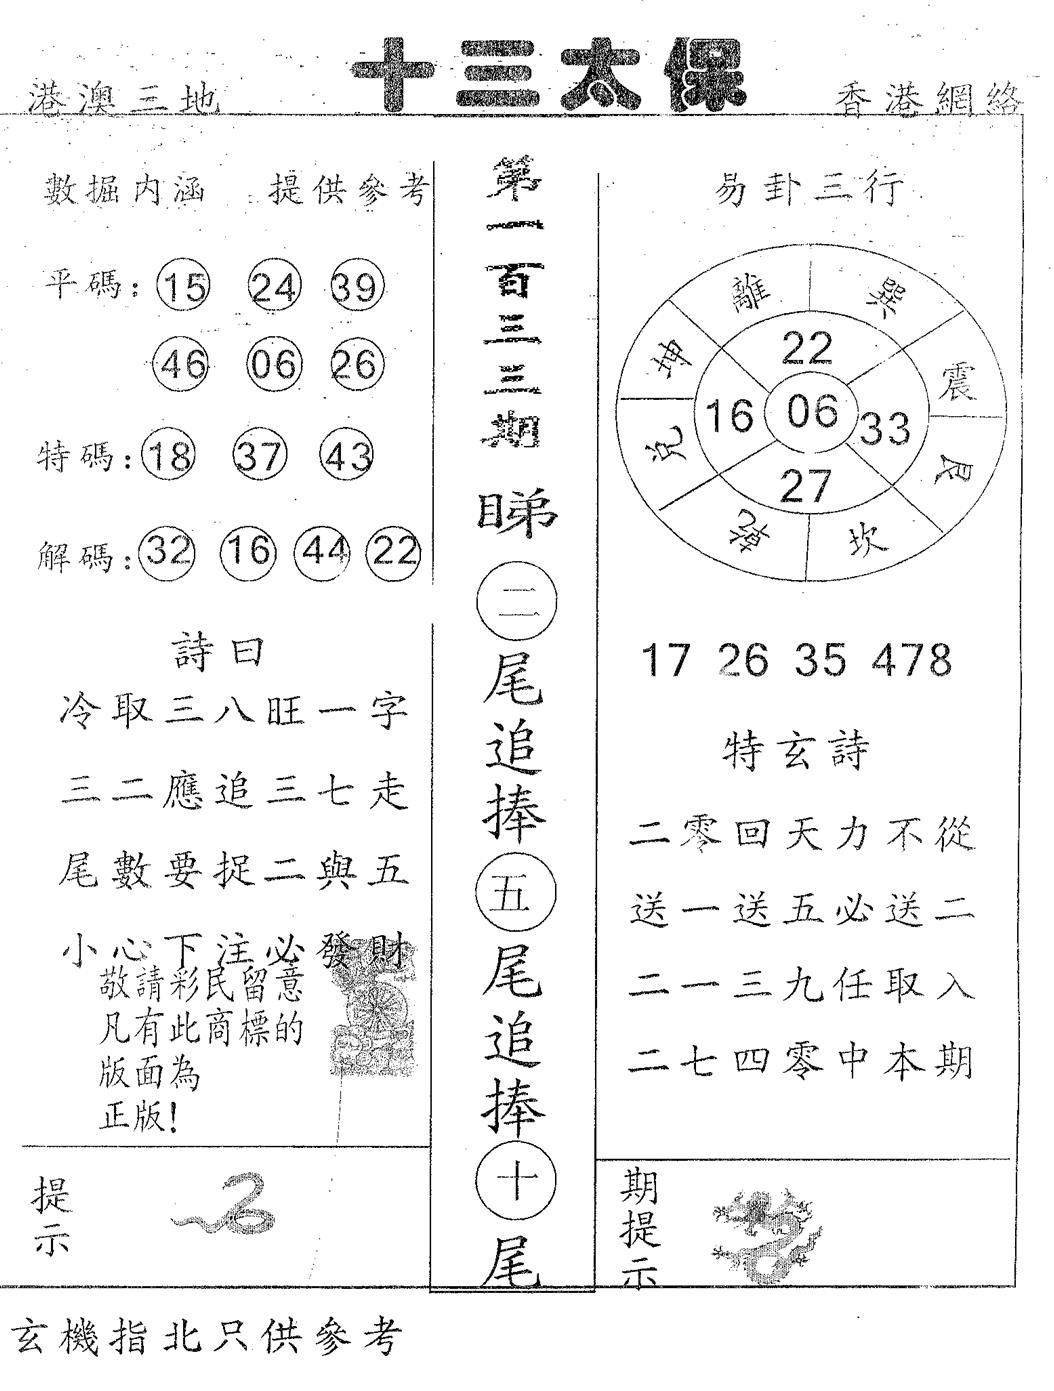 十三太保
港澳三地
香港網絡
數掘内涵 提供參考
平碼：15 24 39
46 06 26
特碼：18 37 43
解碼：32 16 44 22
詩曰
冷取三八旺一字
三二應追三七走
尾數要捉二與五
小心下注必發財
敬請彩民留意
凡有此商標的
版面為
正版!
提示
第一百三三期
睇二尾追捧五尾追捧十尾
易卦三行
離 巽
坤 22 震
16 06 33
兌 27 艮
乾 坎
17 26 35 478
特玄詩
二零回天力不從
送一送五必送二
二一三九任取入
二七四零中本期
期提示
玄機指北只供參考